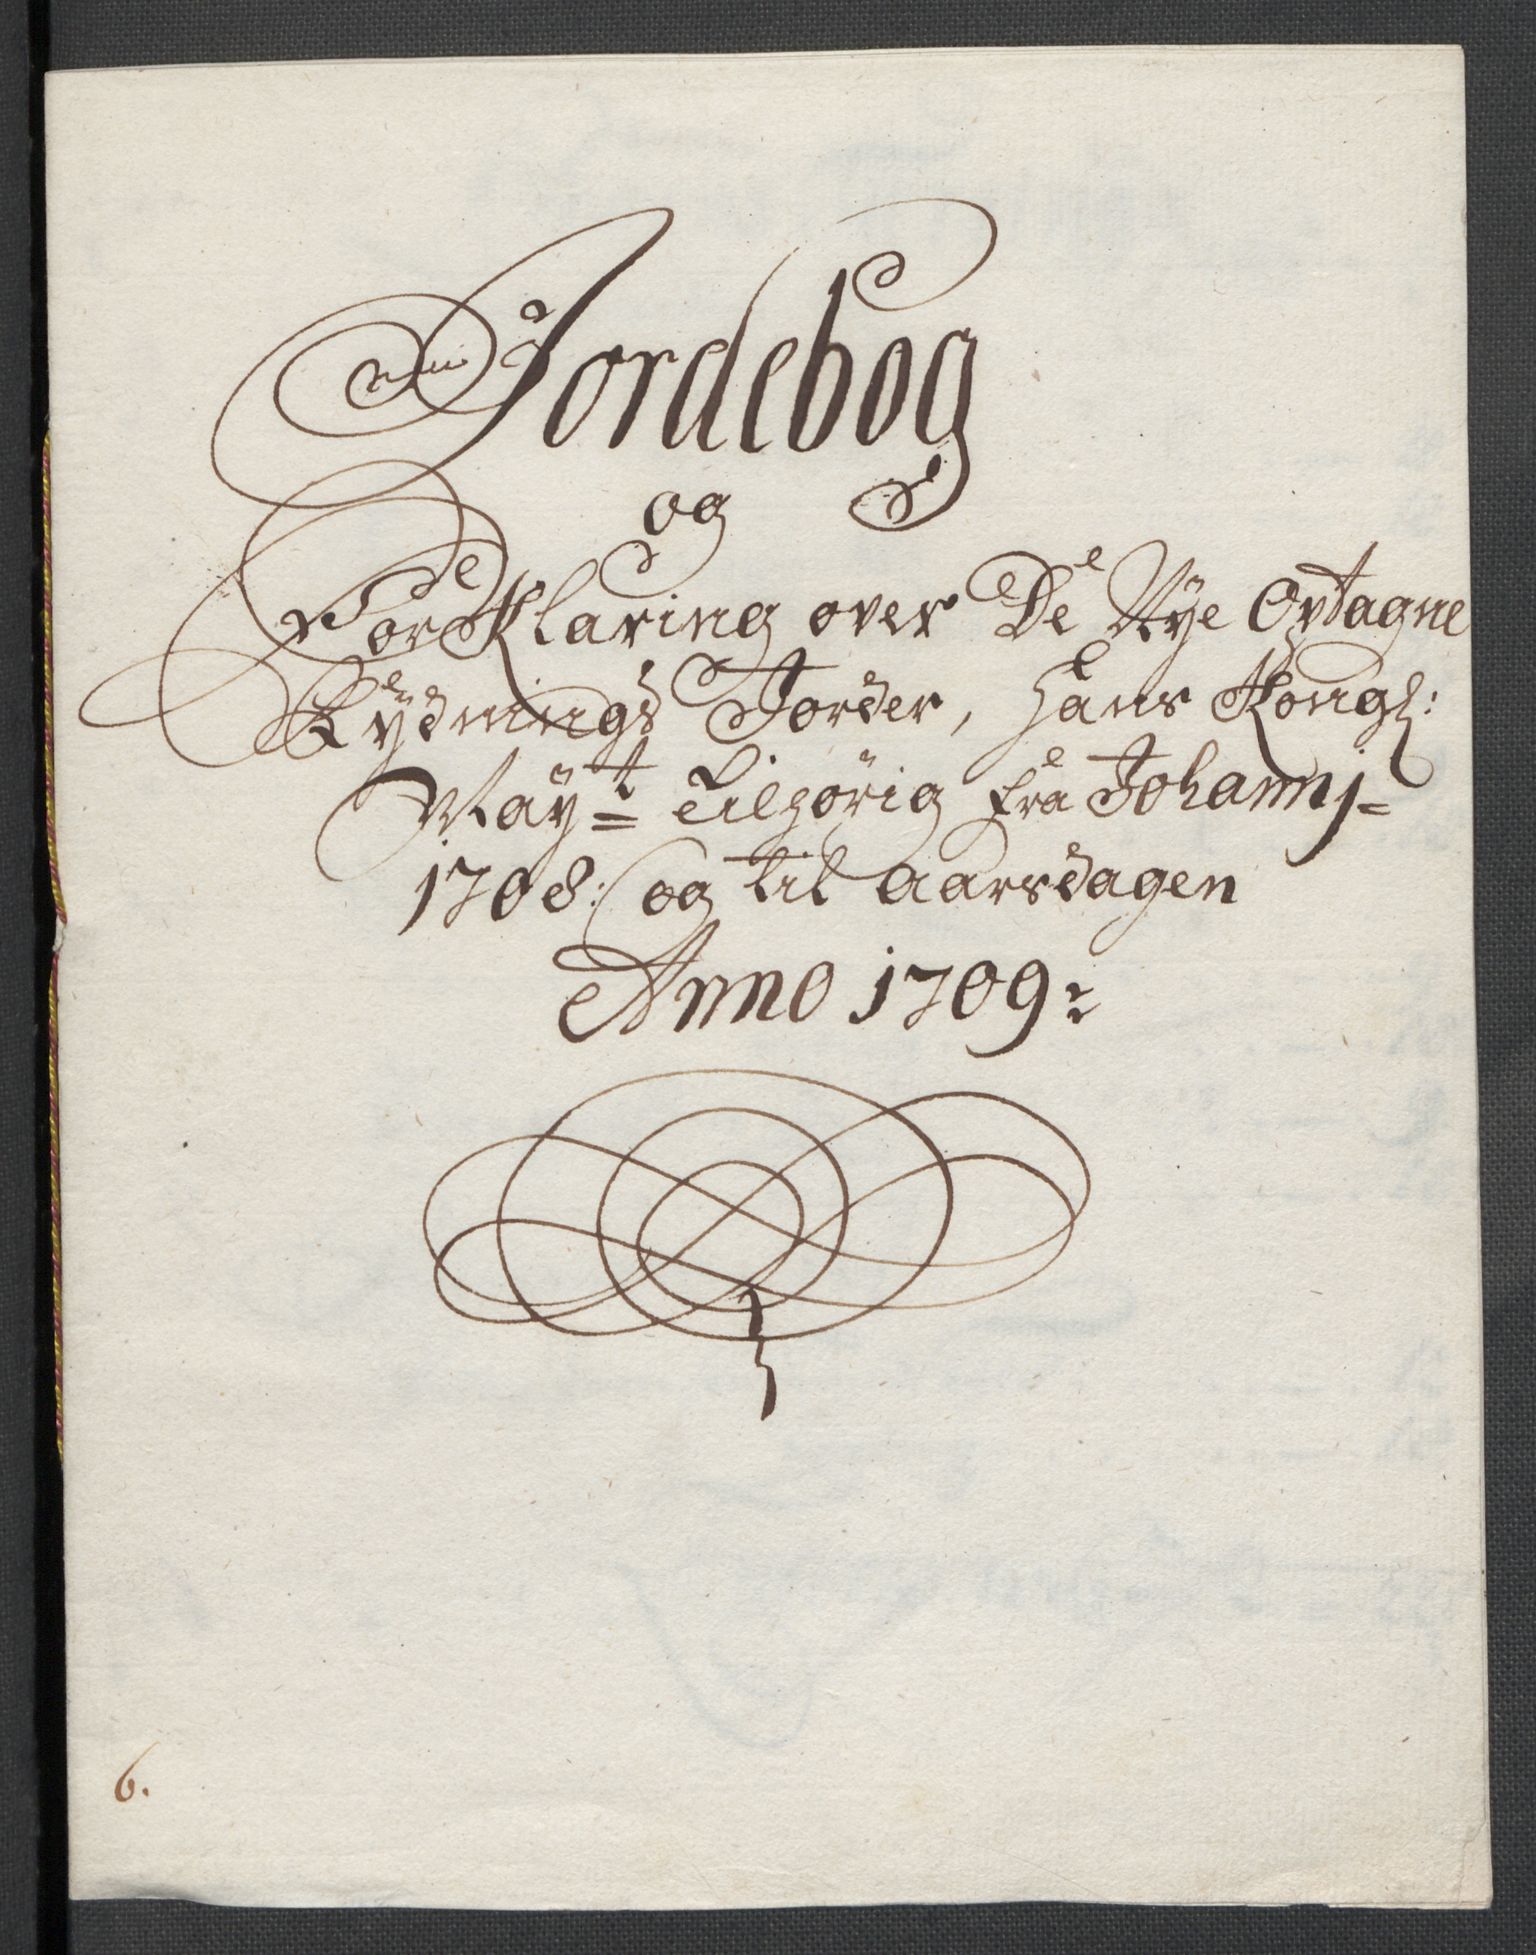 Jordebog
og
Forklaring over De Nye Optagne
Rydnings Jorder, Hans Kongl:
Mayt= Tilhörig fra Johannj=
1708: og til Aarsdagen
Anno 1709:
6.